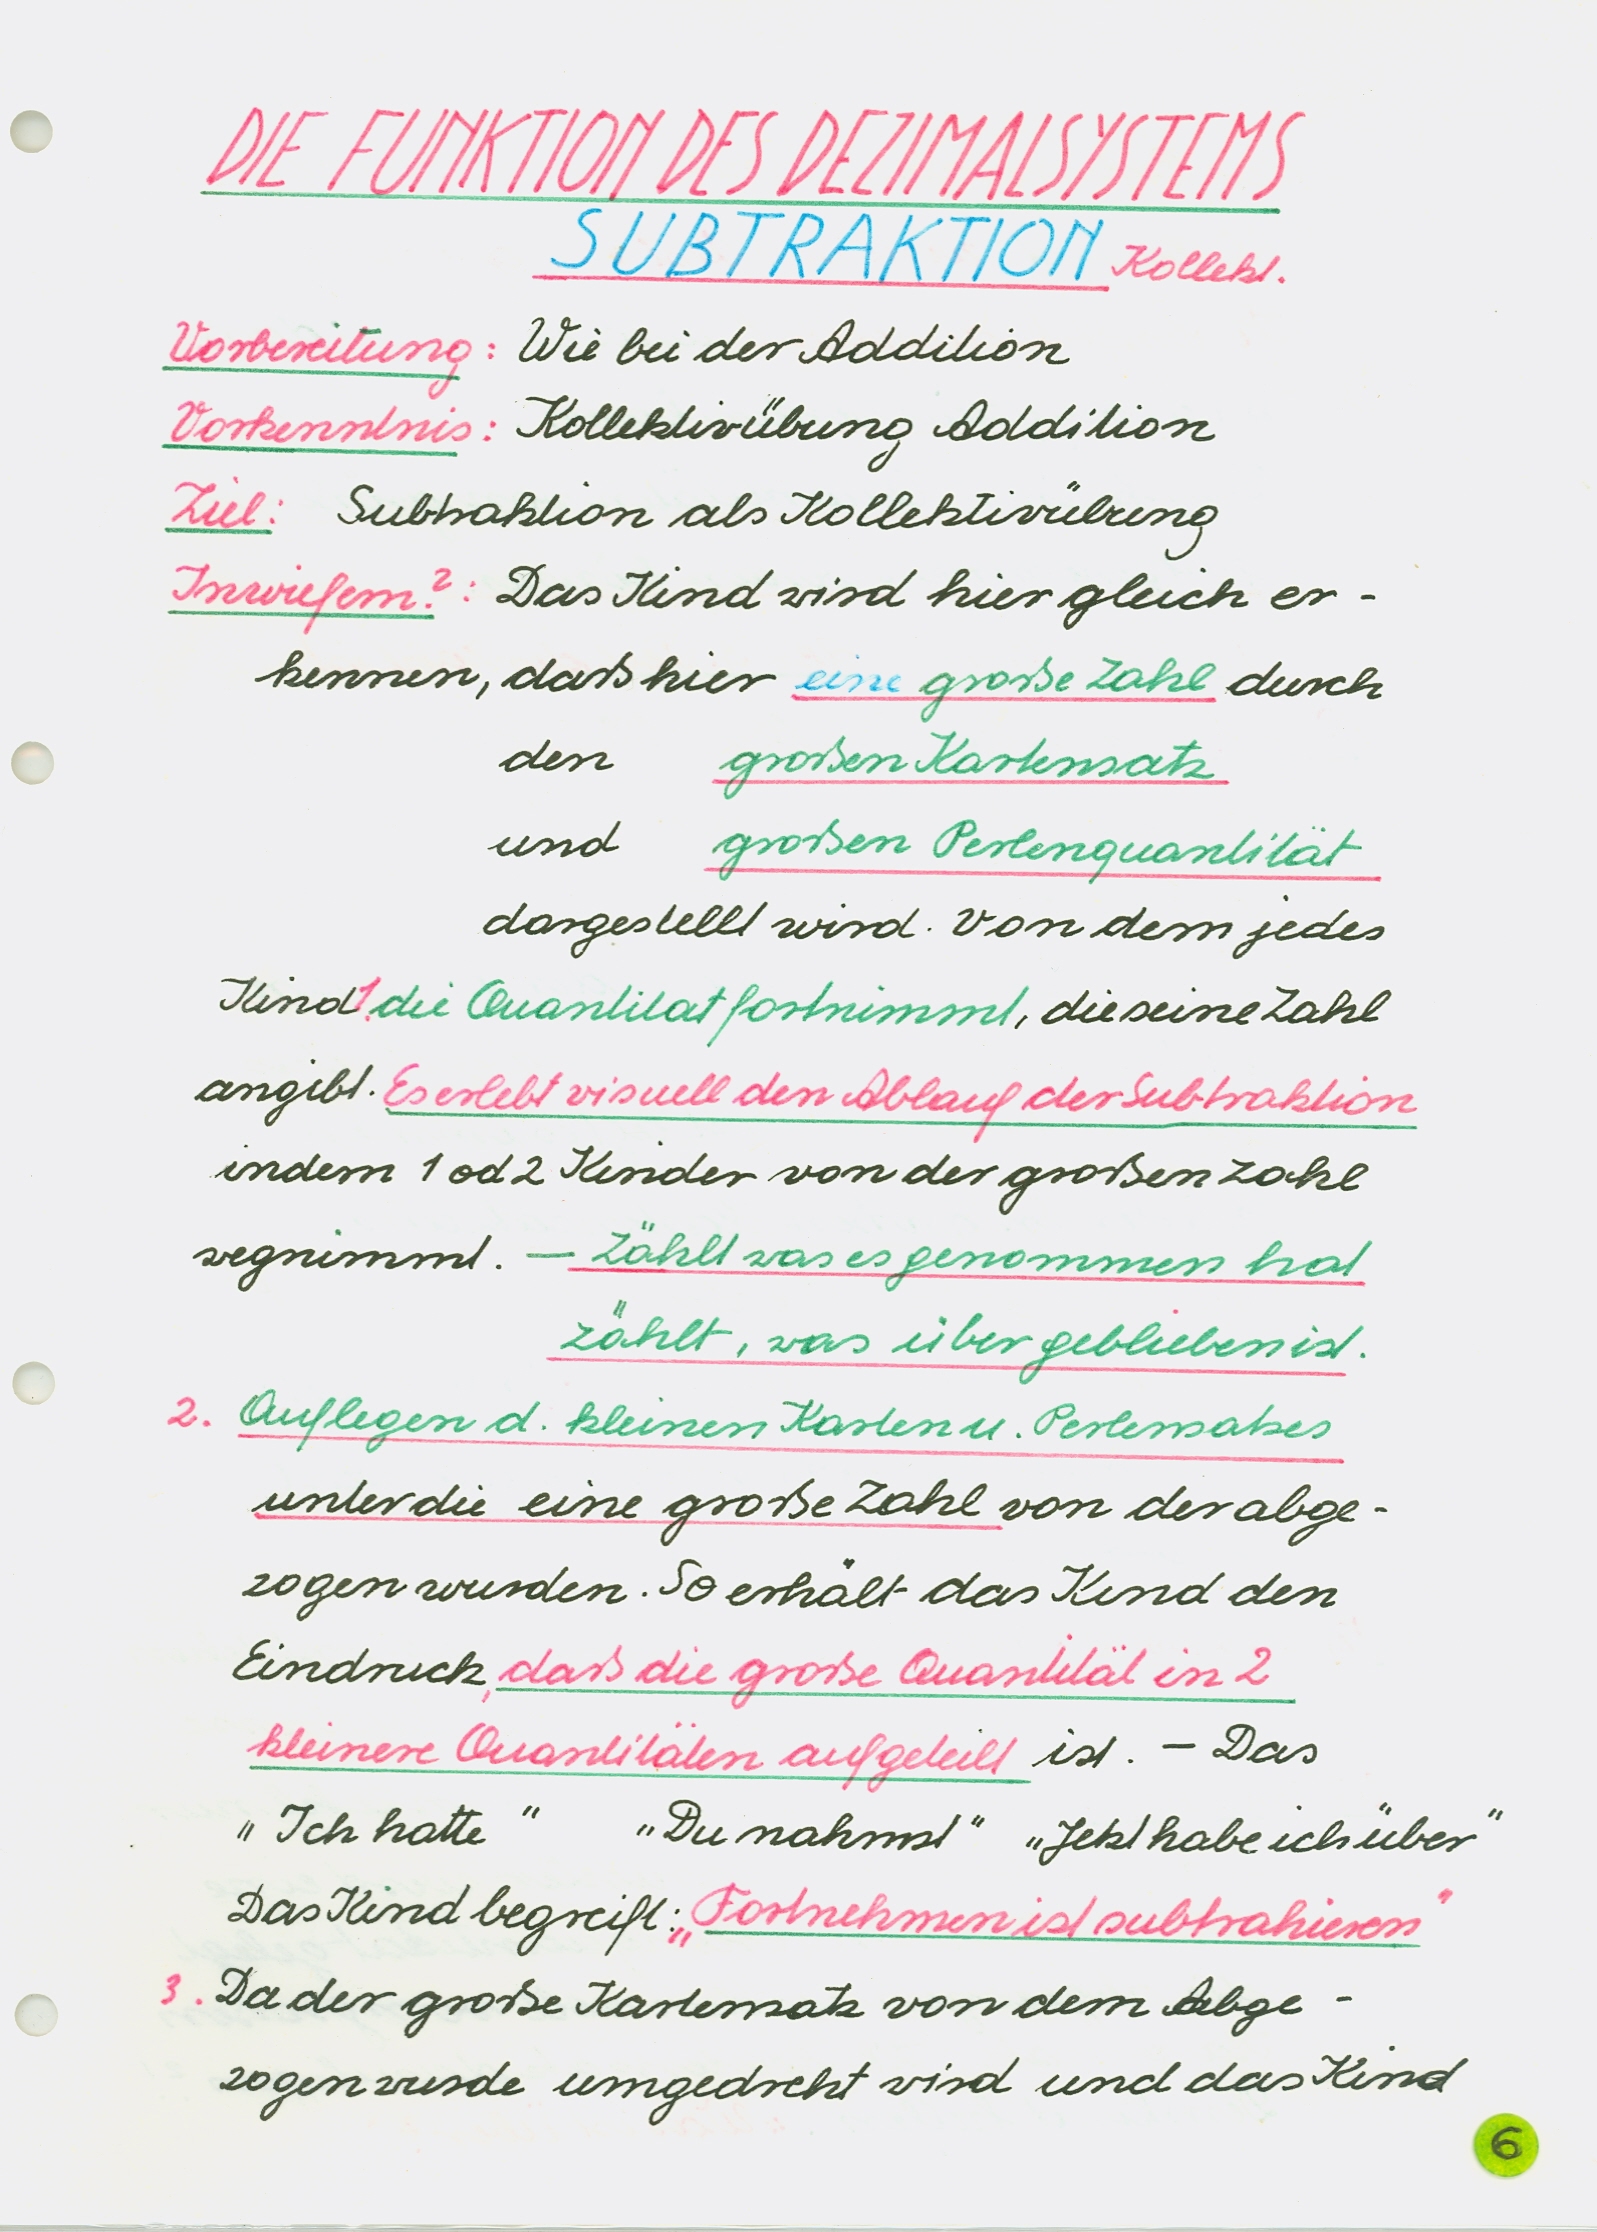 DIE FUNKTION DES DEZIMALSYSTEMS
SUBTRAKTION Kollekt.
Vorbereitung: Wie bei der Addition
Vorkenntnis: Kollektivübung Addition
Ziel: Subtraktion als Kollektivübung
Inwiefern?: Das Kind wird hier gleich er-
kennen, daß hier eine große Zahl durch
den großen Kartensatz
und großen Perlenquantität
dargestellt wird. Von dem jedes
Kind 1. die Quantitat fortnimmt, die seine Zahl
angibt. Es erlebt visuell den Ablauf der Subtraktion
indem 1 od 2 Kinder von der großen Zahl
wegnimmt. — Zählt was es genommen hat
zählt, was über geblieben ist.
2. Auflegen d. kleinen Karten u. Perlensatzes
unter die eine große Zahl von der abge-
zogen wurden. So erhält das Kind den
Eindruck, daß die große Quantität in 2
kleinere Quantitäten aufgeteilt ist. — Das
„Ich hatte" „Du nahmst" „Jetzt habe ich über"
Das Kind begreift: „Fortnehmen ist subtrahieren"
3. Da der große Kartensatz von dem Abge-
zogen wurde umgedreht wird und das Kind
6